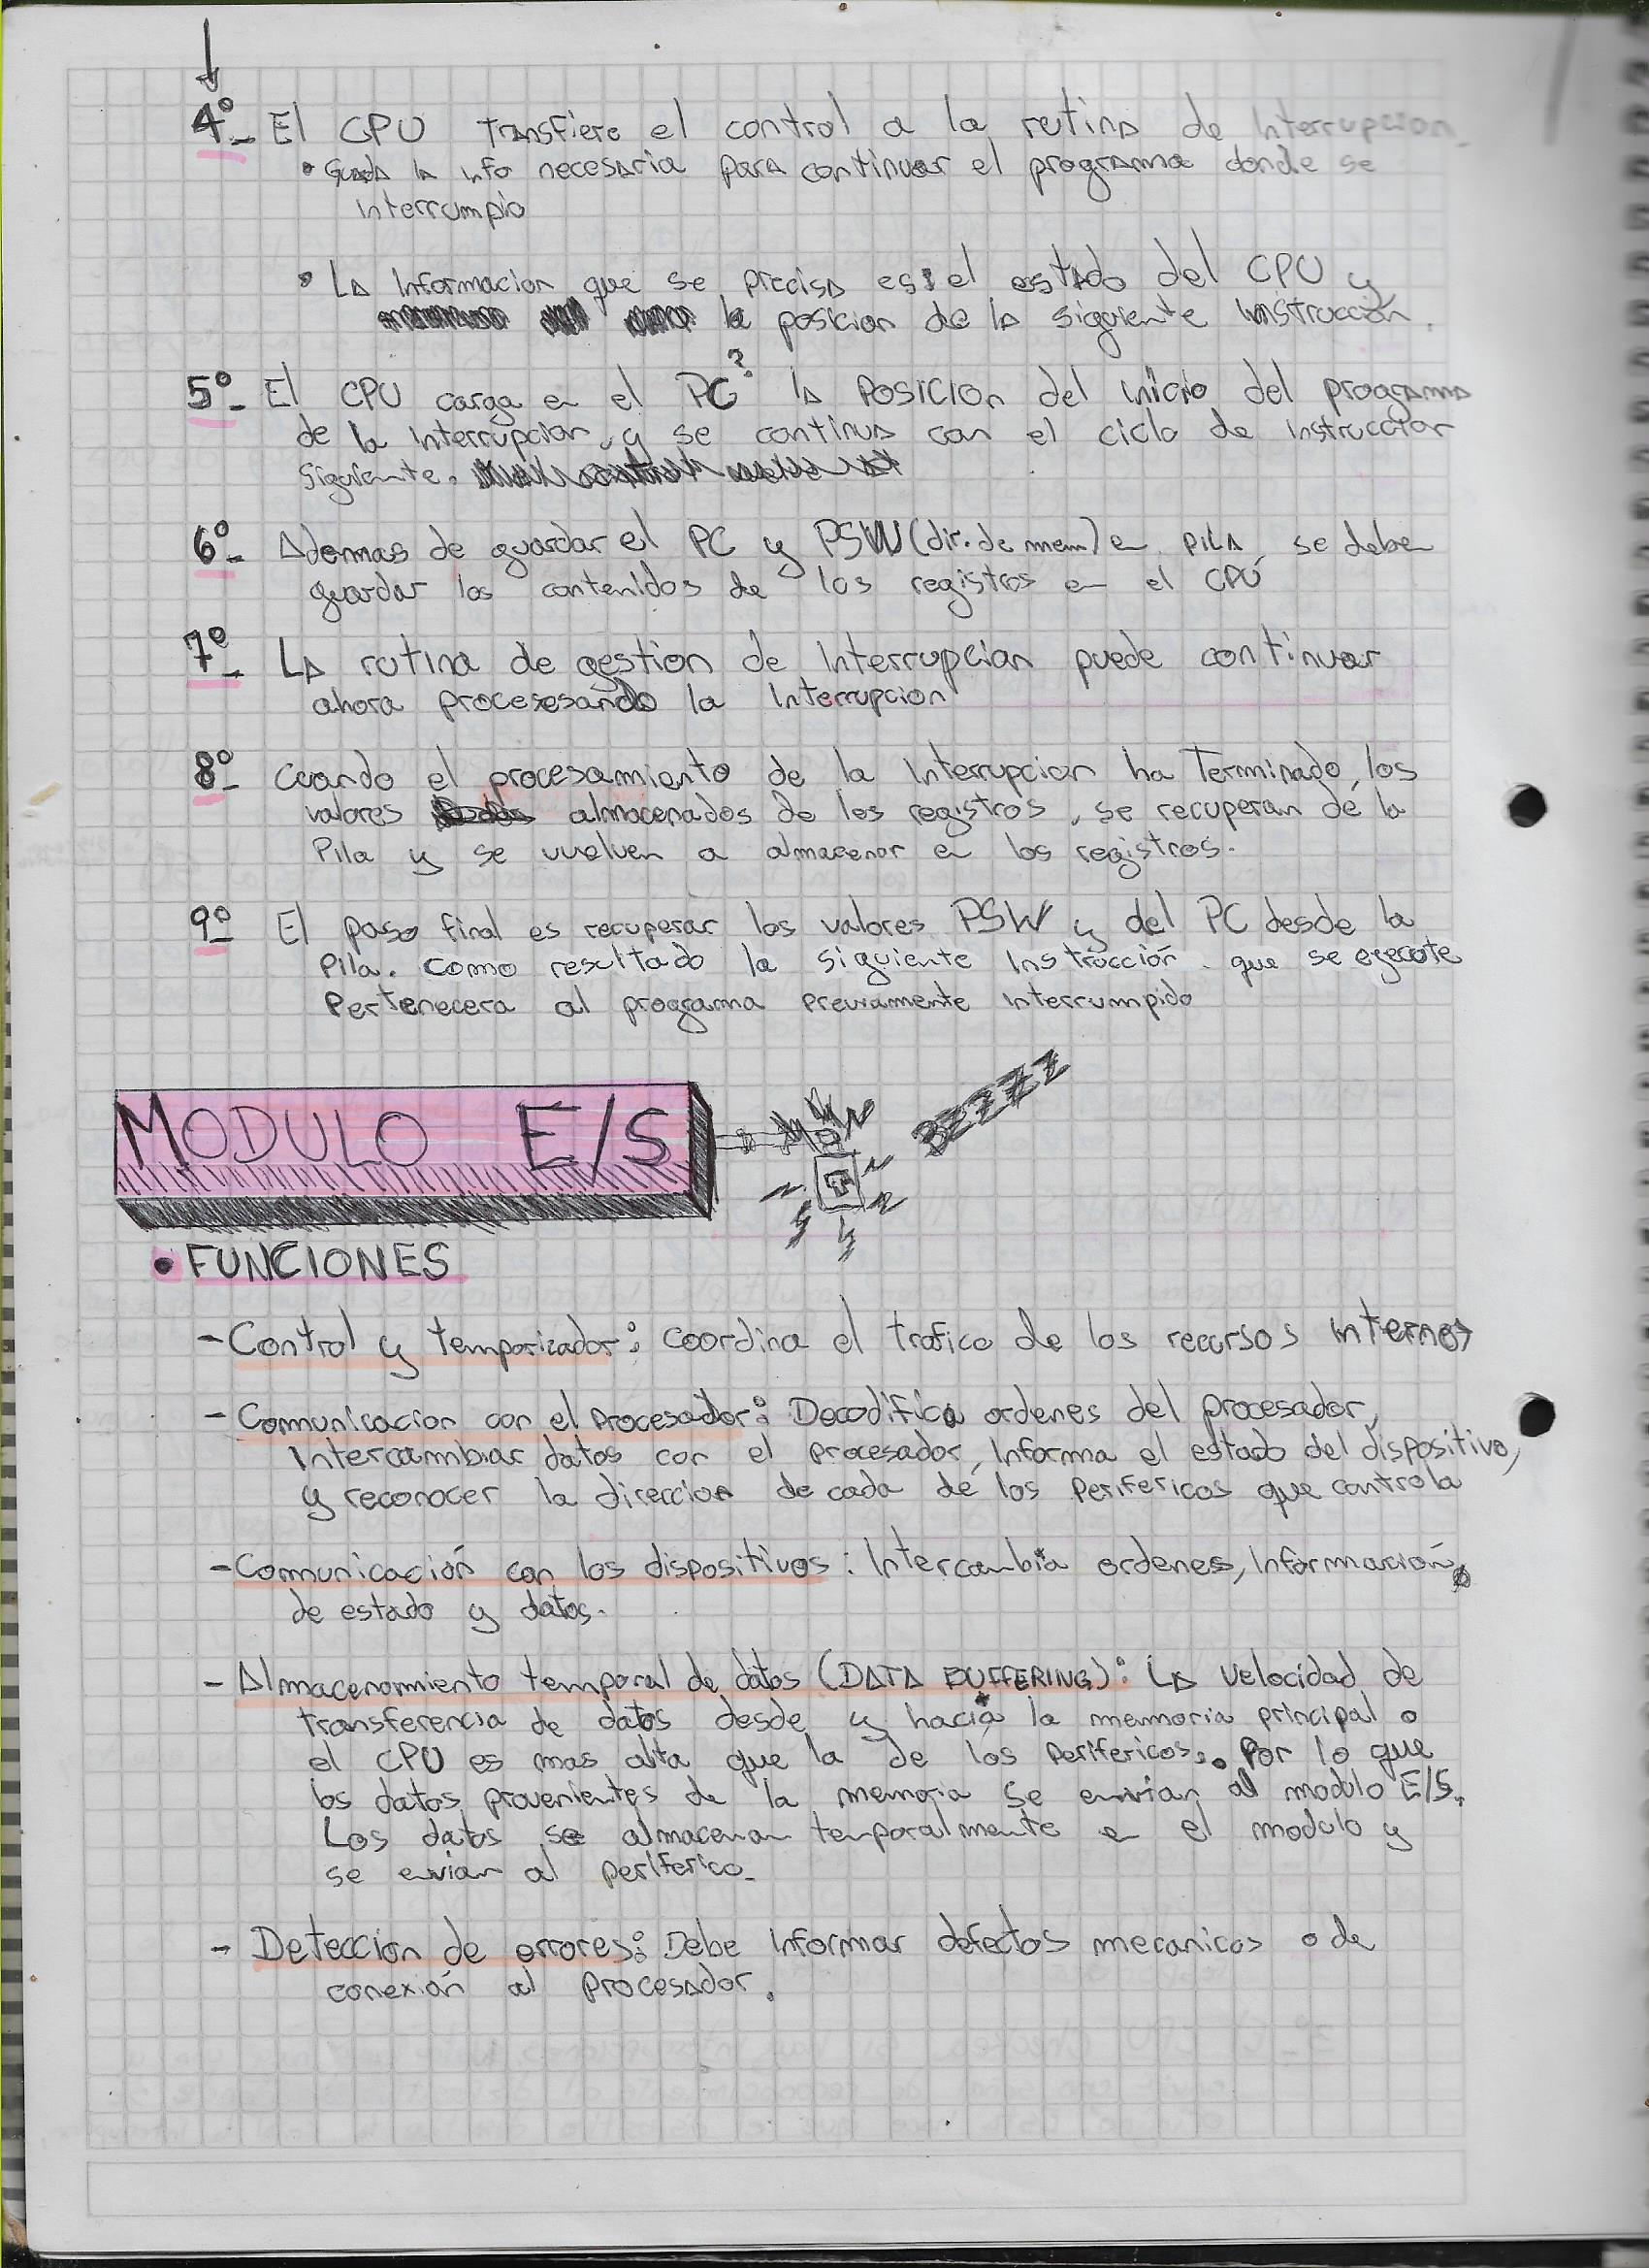 4º- El CPU Transfiere el control a la rutina de Interrupcion.
• Guarda la info necesaria para continuar el programa donde se
interrumpio
• La Informacion que se precisa es: el estado del CPU y
la posicion de la siguiente instrucción.
5º- El CPU carga en el PC? la Posicion del inicio del programa
de la interrupcion, y se continua con el ciclo de instruccion
siguiente.
6º- Ademas de guardar el PC y PSW (dir. de mem) en PILA, se deben
guardar los contenidos de los registros en el CPU
7º- La rutina de gestion de Interrupcion puede continuar
ahora procesesando la Interrupcion
8º- Cuando el procesamiento de la Interrupcion ha Terminado, los
valores almacenados de los registros, se recuperan de la
Pila y se vuelven a almacenar en los registros.
9º El paso final es recuperar los valores PSW y del PC desde la
Pila. Como resultado la siguiente Instrucción que se ejecute
Pertenecera al programa Previamente Interrumpido
MODULO E/S
BZZZZZ
• FUNCIONES
- Control y temporizador: Coordina el trafico de los recursos internos
- Comunicacion con el Procesador: Decodifica ordenes del procesador,
Intercambiar datos con el procesador, Informa el estado del dispositivo,
y reconocer la direccion de cada de los Perifericos que controla
- Comunicación con los dispositivos: Intercambia ordenes, Información
de estado y datos.
- Almacenamiento temporal de datos (DATA BUFFERING): La Velocidad de
transferencia de datos desde y hacia la memoria principal o
el CPU es mas alta que la de los Perifericos. Por lo que
los datos provenientes de la memoria se envian al modulo E/S.
Los datos se almacenan temporalmente en el modulo y
se envian al periferico.
- Deteccion de errores: Debe Informar defectos mecanicos o de
conexión al Procesador.